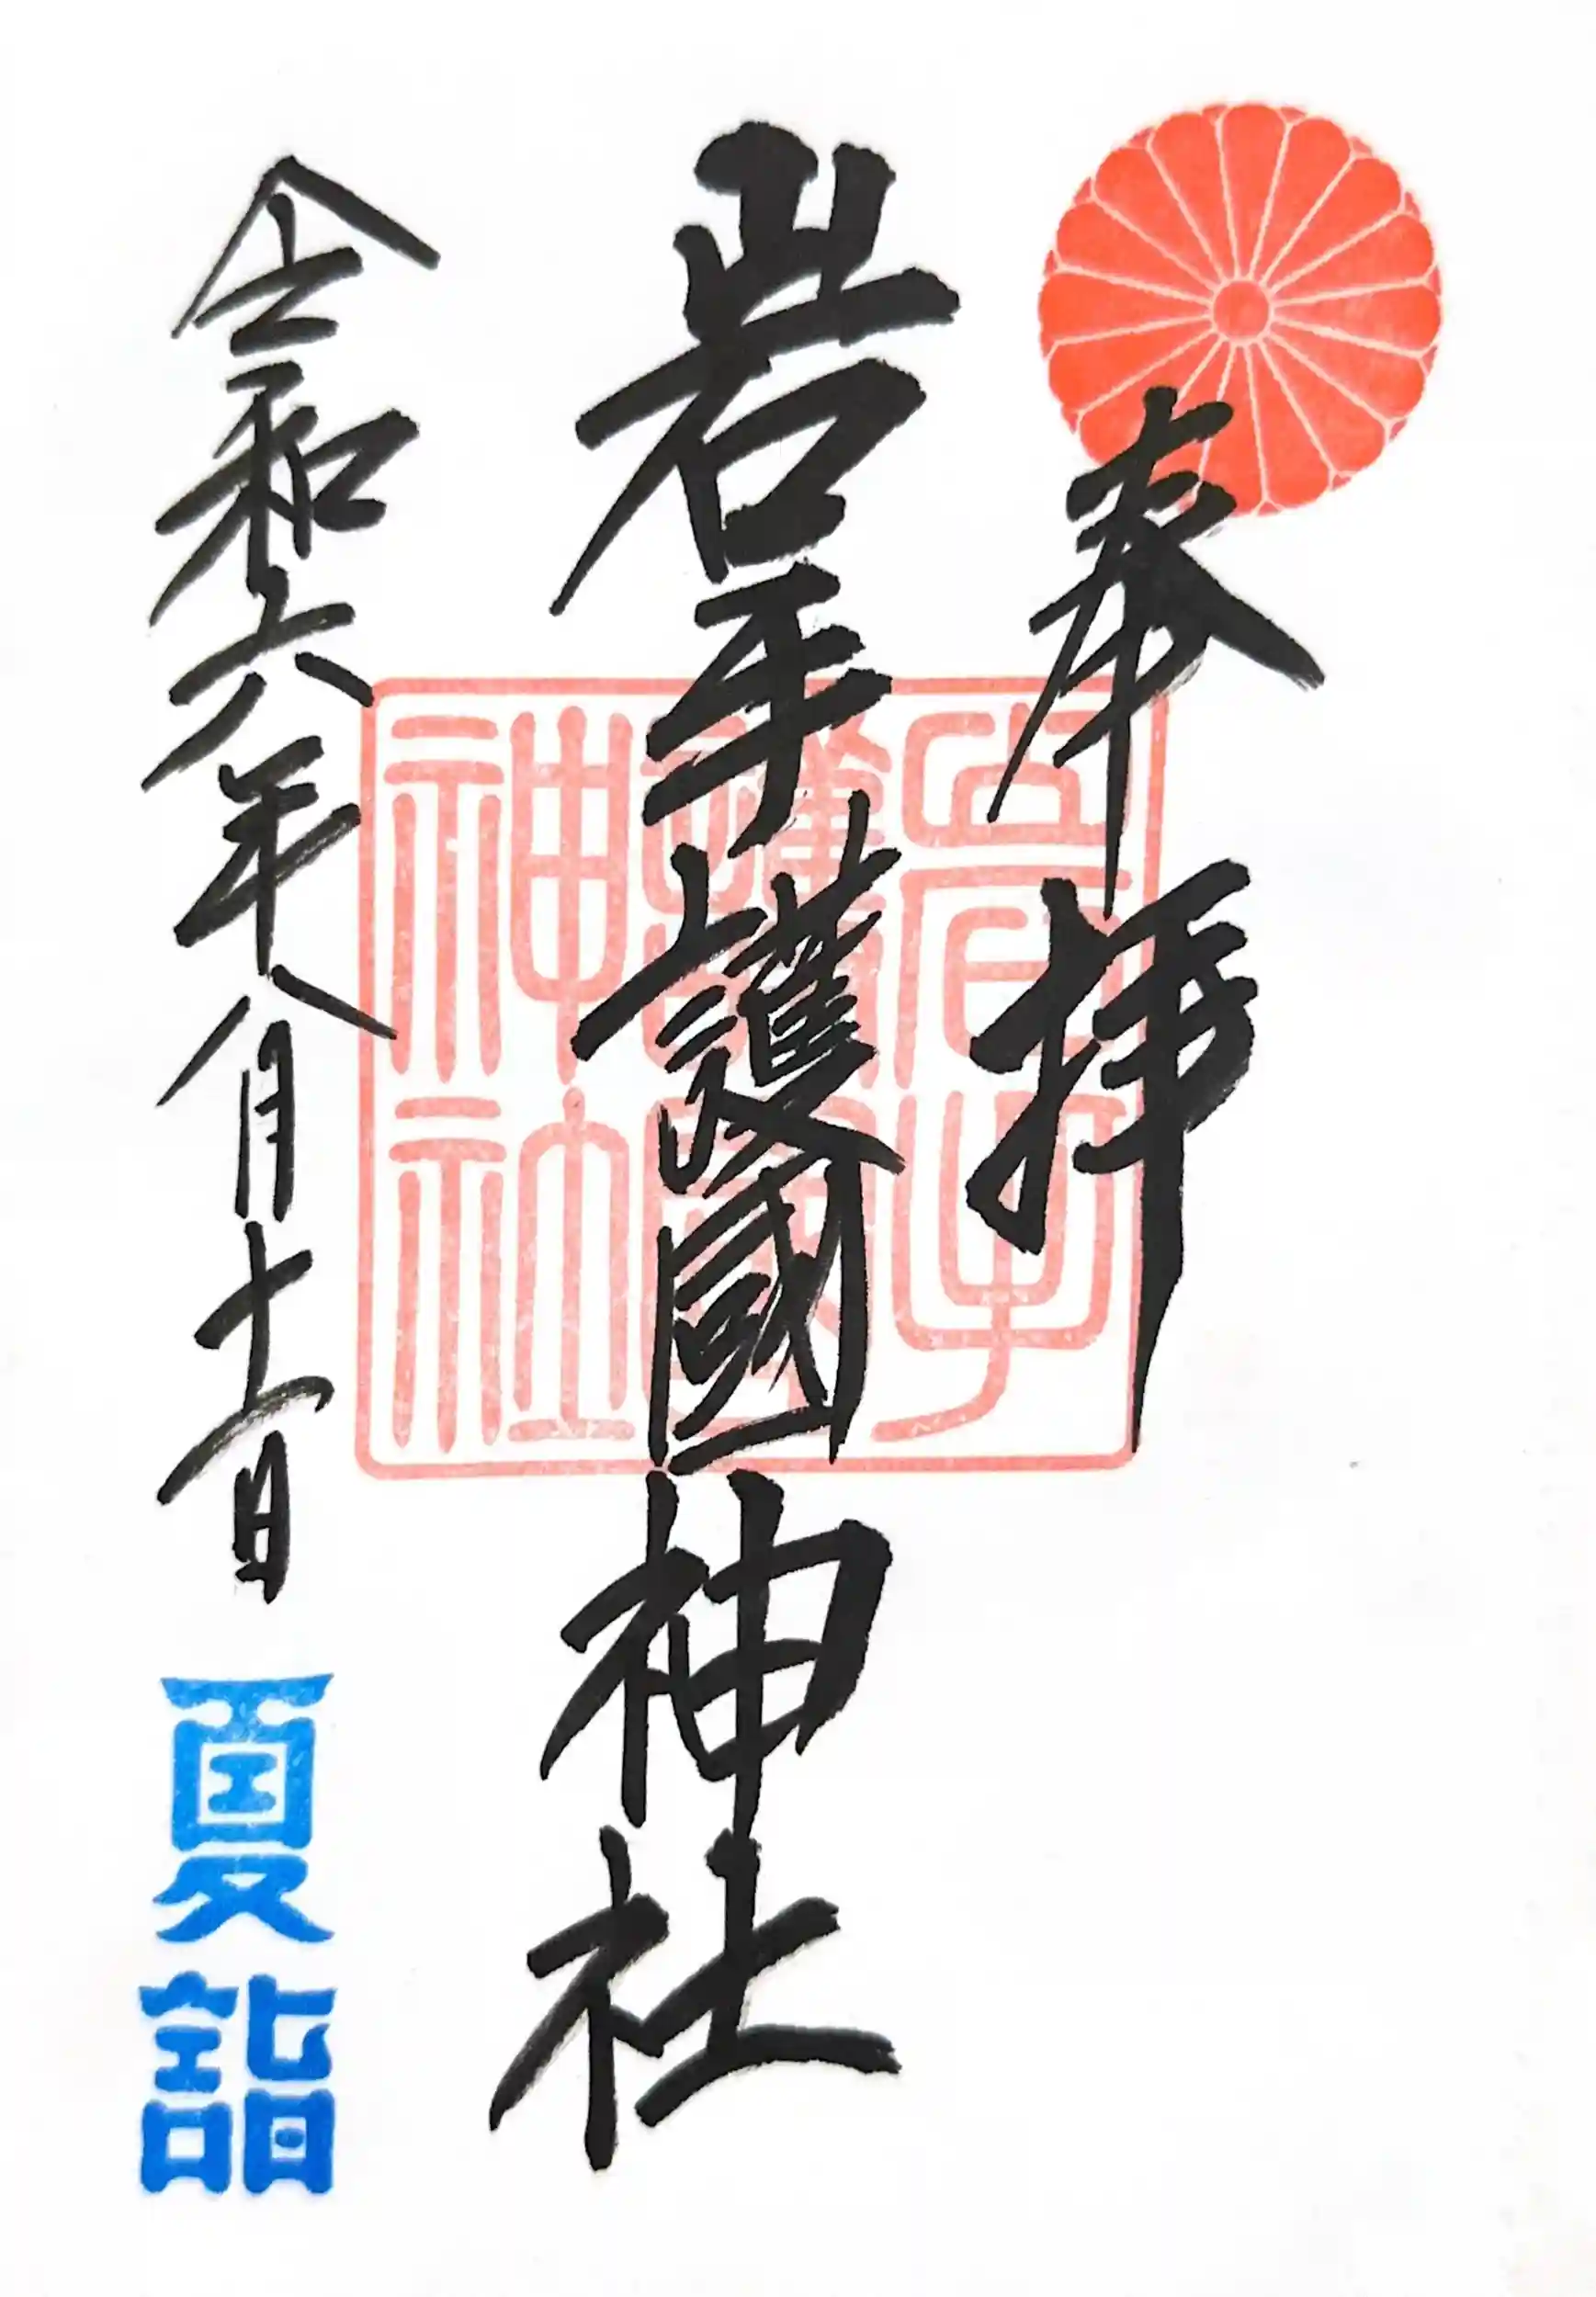 奉拝
岩手護國神社
令和六年八月十一日
夏詣
岩手
護國
神社